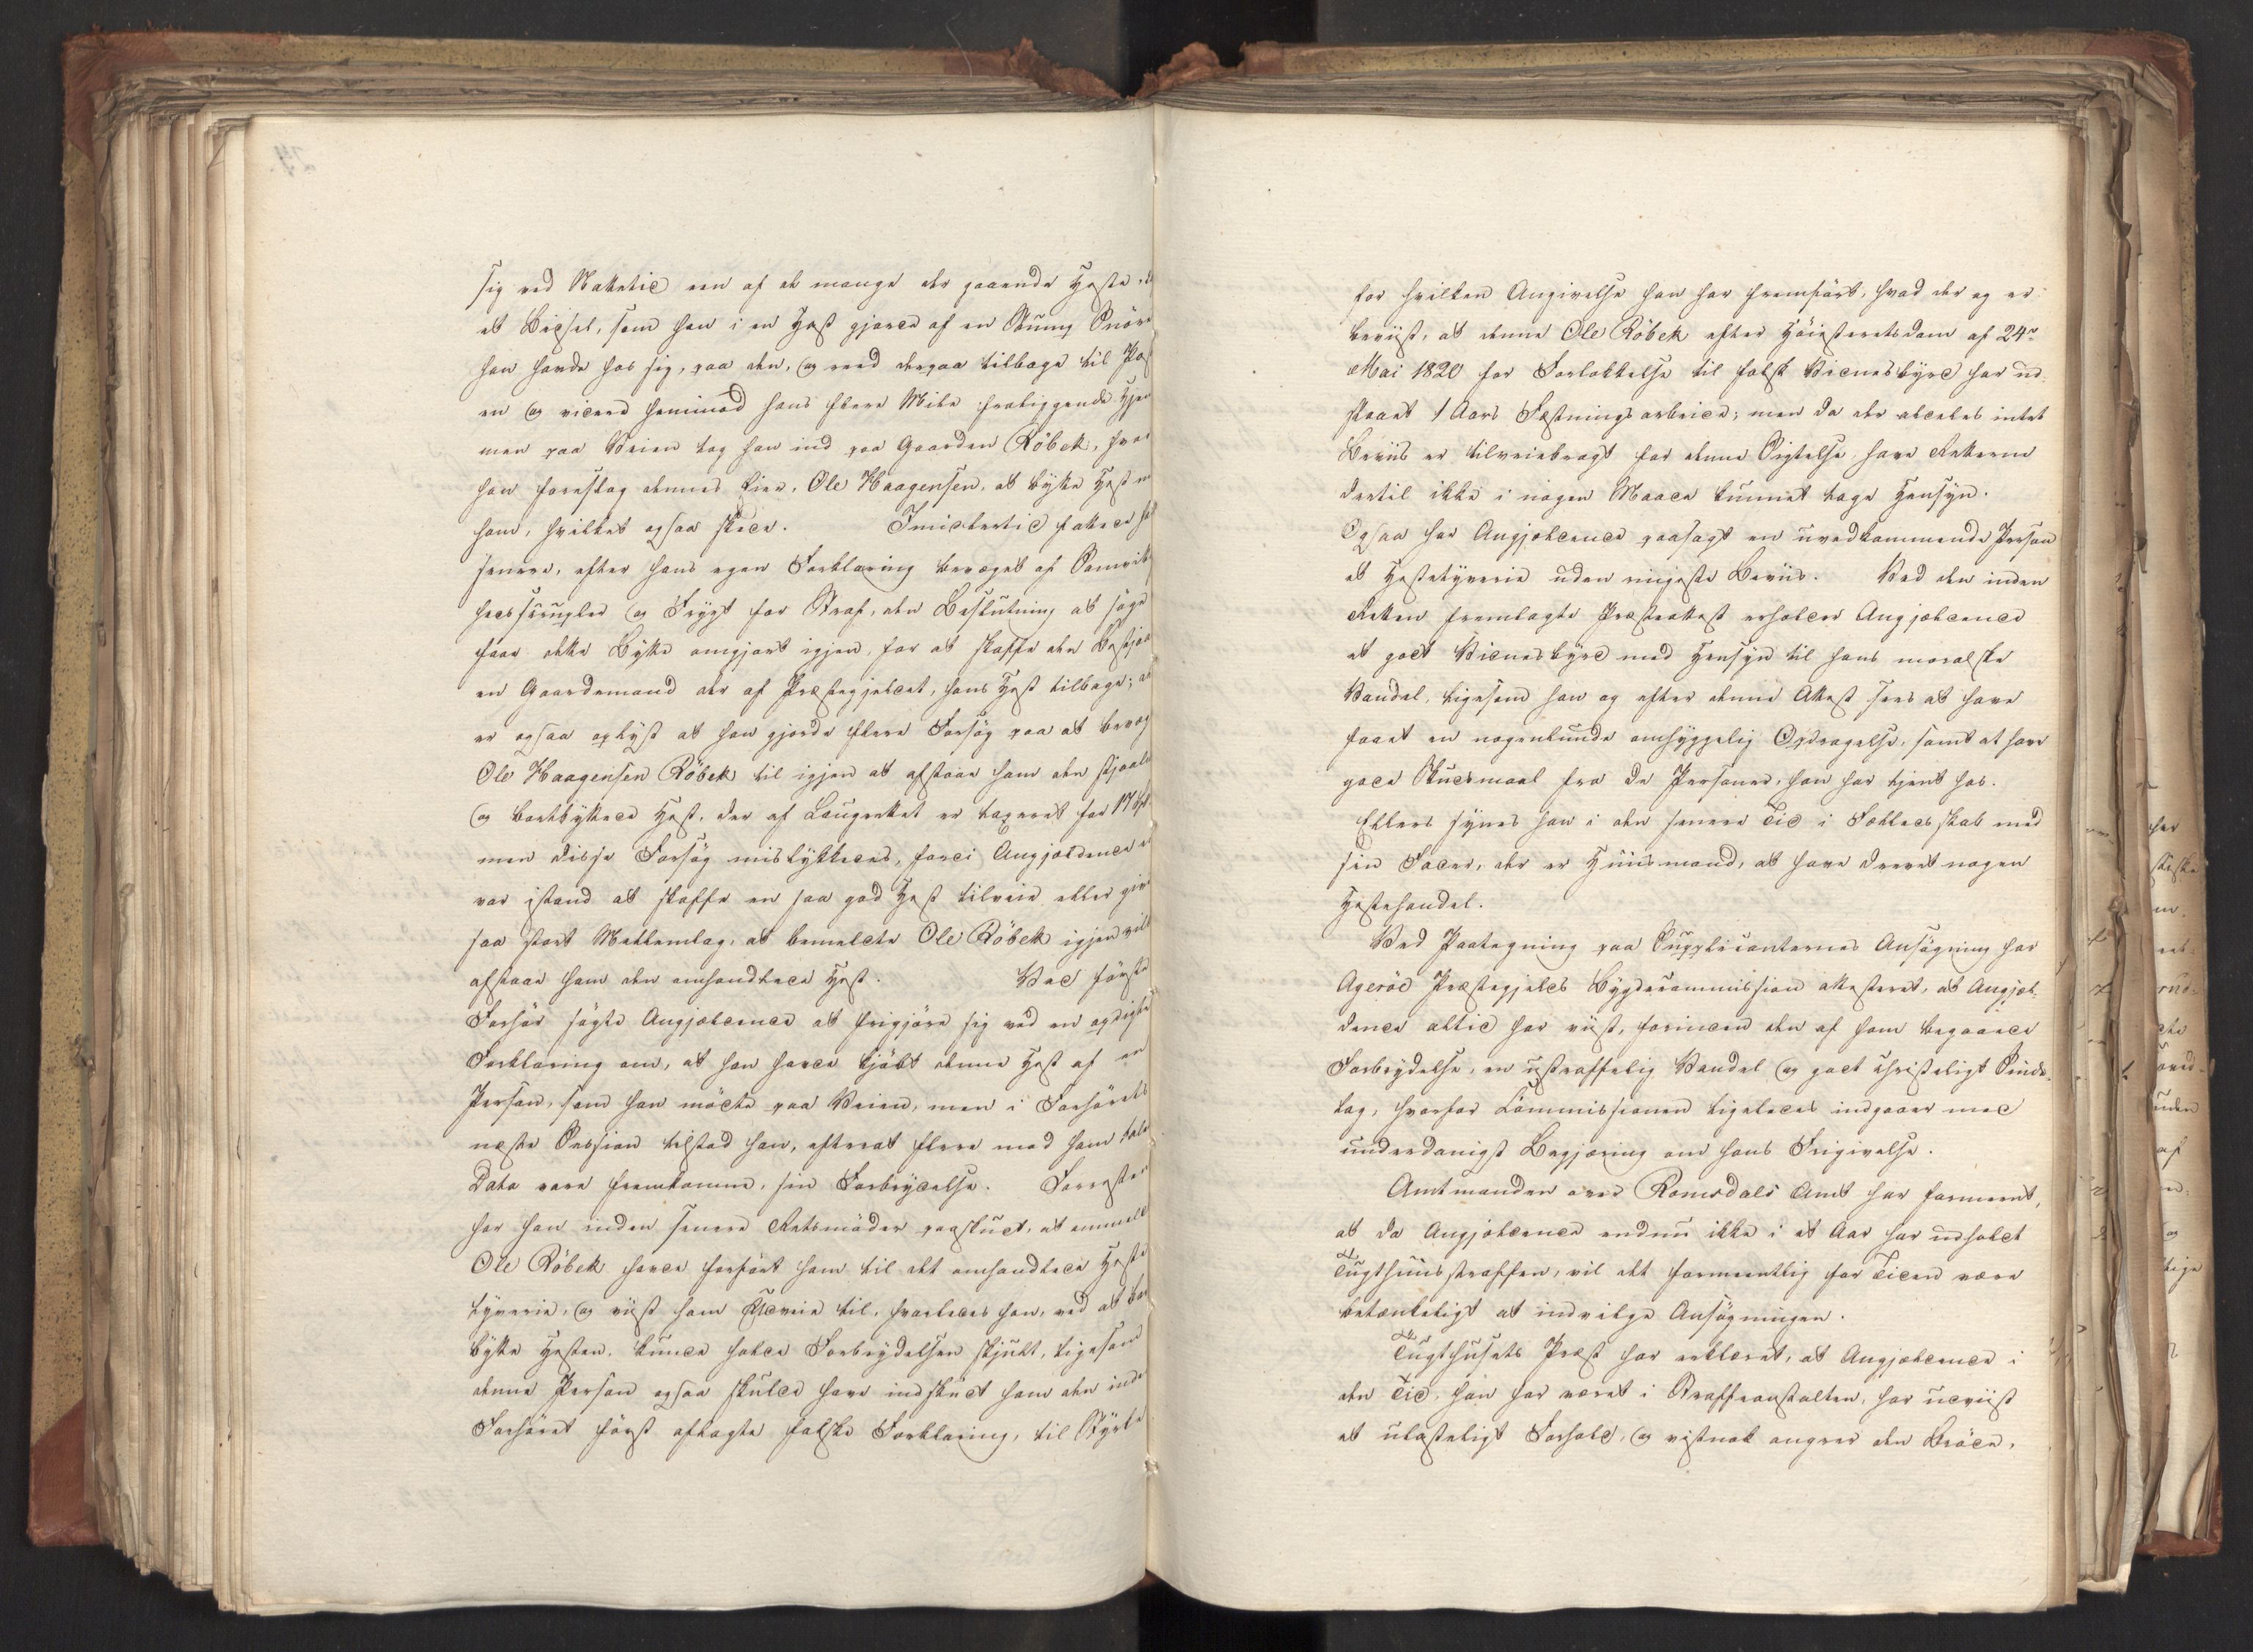 sig ved Nattetid een af de mange der gaaende Heste,
et Bidsel, som han i en Hast gjorde af en Stump Snöre
han havde hos sig, paa den, og reed derpaa tilbage til
en og videre henimod hans flere Mile fraliggende Hjem
men paa Veien tog han ind paa Gaarden Röbek, hvor
han foreslog dennes Eier, Ole Haagensen, at bytte Hest
ham, hvilket ogsaa skede. Imidlertid fattede
senere, efter hans egen Forklaring bevæget af Samvittig
hedsscrupler og Frygt for Straf, den Beslutning at søge
faae dette Bytte omgjort igjen, for at skaffe den Bestjaal
en Gaardemand der af Præstegjeldet, hans Hest tilbage;
er ogsaa oplyst at han gjorde flere Forsøg paa at bevæg
Ole Haagensen Röbek til igjen at afstaae ham den stjaalne
og bortbyttede Hest, der af Laugrettet er taxeret for 17 Spd.
men disse Forsøg mislykkedes, fordi Angjældende
var istand at skaffe en saa god Hest tilveie eller give
saa stort Mellemlag, at bemeldte Ole Röbek igjen vilde
afstaae ham den omhandlede Hest. Ved første
Forhör søgte Angjældende at frigjøre sig ved en opdigtet
Forklaring om, at han havde kjøbt denne Hest af en
Person, som han mødte paa Veien, men i Forhørets
næste Session tilstod han, efterat flere mod ham talende
Data vare fremkomne, sin Forbrydelse. Forresten
har han inden senere Retsmøder paaskudt, at anmeldte
Ole Röbek havde forført ham til det omhandlede Heste
tyverie, og viist ham Udveie til, hvorledes han, ved at bort
bytte Hesten, kunde holde Forbrydelsen skjult, ligesom
denne Person ogsaa skulde have indskudt ham den inden
Forhøret først aflagte falske Forklaring, til Styrke
for hvilken Angivelse han har fremført, hvad der og er
beviist, at denne Ole Röbek efter Höiesteretsdom af 24de
Mai 1820 for Forlokkelse til falsk Vidnesbyrd har ud-
staaet 1 Aars Fæstningsarbeide; men da der aldeles intet
Beviis er tilveiebragt for denne Sigtelse, have Retterne
dertil ikke i nogen Maade kunnet tage Hensyn.
Ogsaa har Angjældende paasagt en uvedkommende Person
et Hestetyverie uden ringeste Beviis. Ved den inden
Retten fremlagte Præsteattest erholder Angjældende
et godt Vidnesbyrd med Hensyn til hans moralske
Vandel, ligesom han og efter denne Attest sees at have
faaet en nogenlunde omhyggelig Opdragelse, samt at have
gode Skudsmaal fra de Personer, han har tjent hos.
Ellers synes han i den senere Tid i Fælledsskab med
sin Fader, der er Huusmand, at have drevet nogen
Hestehandel.
Ved Paategning paa Supplicanternes Ansøgning har
Ageröe Præstegjelds Bygdecommission attesteret, at Angjæl-
dende altid har viist, forinden den af ham begaaede
Forbrydelse, en ustraffelig Vandel og godt christeligt Sinde-
lag, hvorfor Commissionen ligeledes indgaaer med
underdanigst Begjæring om hans Frigivelse.
Amtmanden over Romsdals Amt har formeent,
at da Angjældende endnu ikke i et Aar har udholdt
Tugthuusstraffen, vil det formeentlig for Tiden være
betænkeligt at indvilge Ansøgningen.
Tugthusets Præst har erklæret, at Angjældende i
den Tid, han har været i Straffeanstalten, har udviist
et ulasteligt Forhold, og vistnok angrer den Bröde,